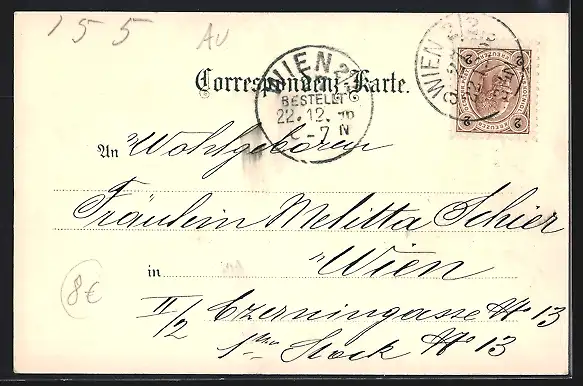 155
AU
Correspondenz-Karte.
WIEN 2/
BESTELLT
22.12.
-7 N
WIEN 2/2
2 2
KREUZER
An Wohlgeboren
Fräulein Melitta Schier
in Wien
II/2 Czerningasse No 13
1ter Stock No 13
8€